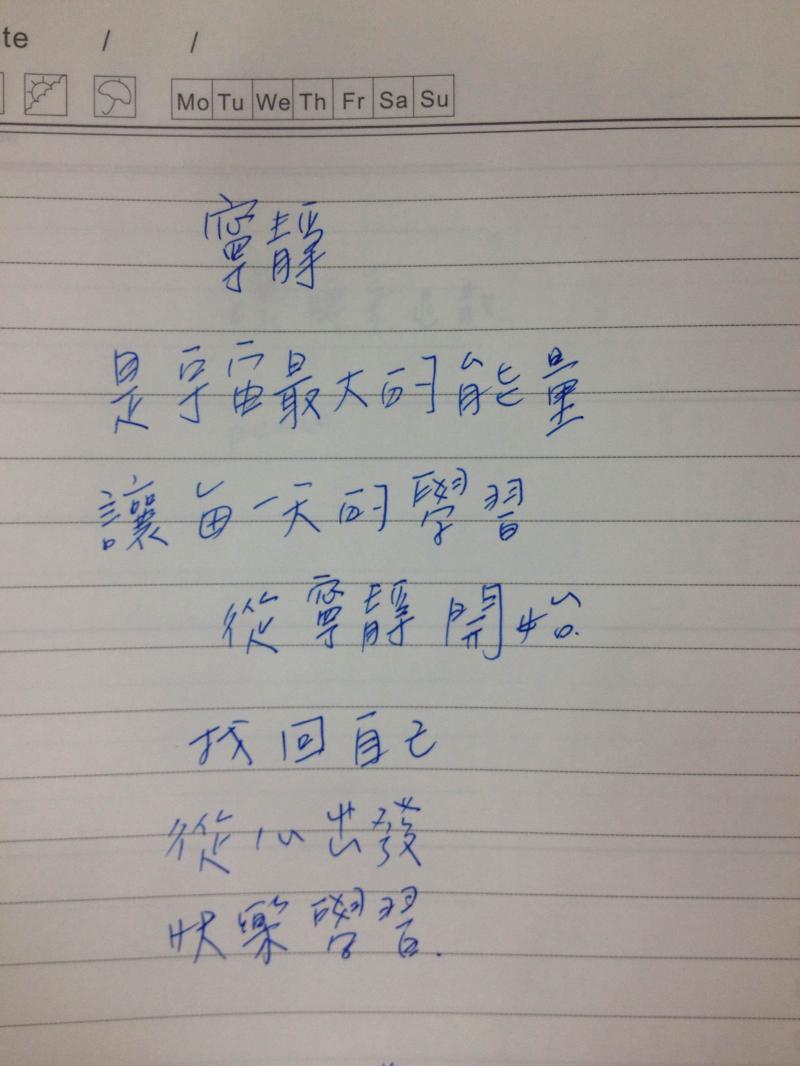 te / /
Mo Tu We Th Fr Sa Su
寧靜
是宇宙最大的能量
讓每一天的學習
從寧靜開始.
找回自己
從心出發
快樂學習.